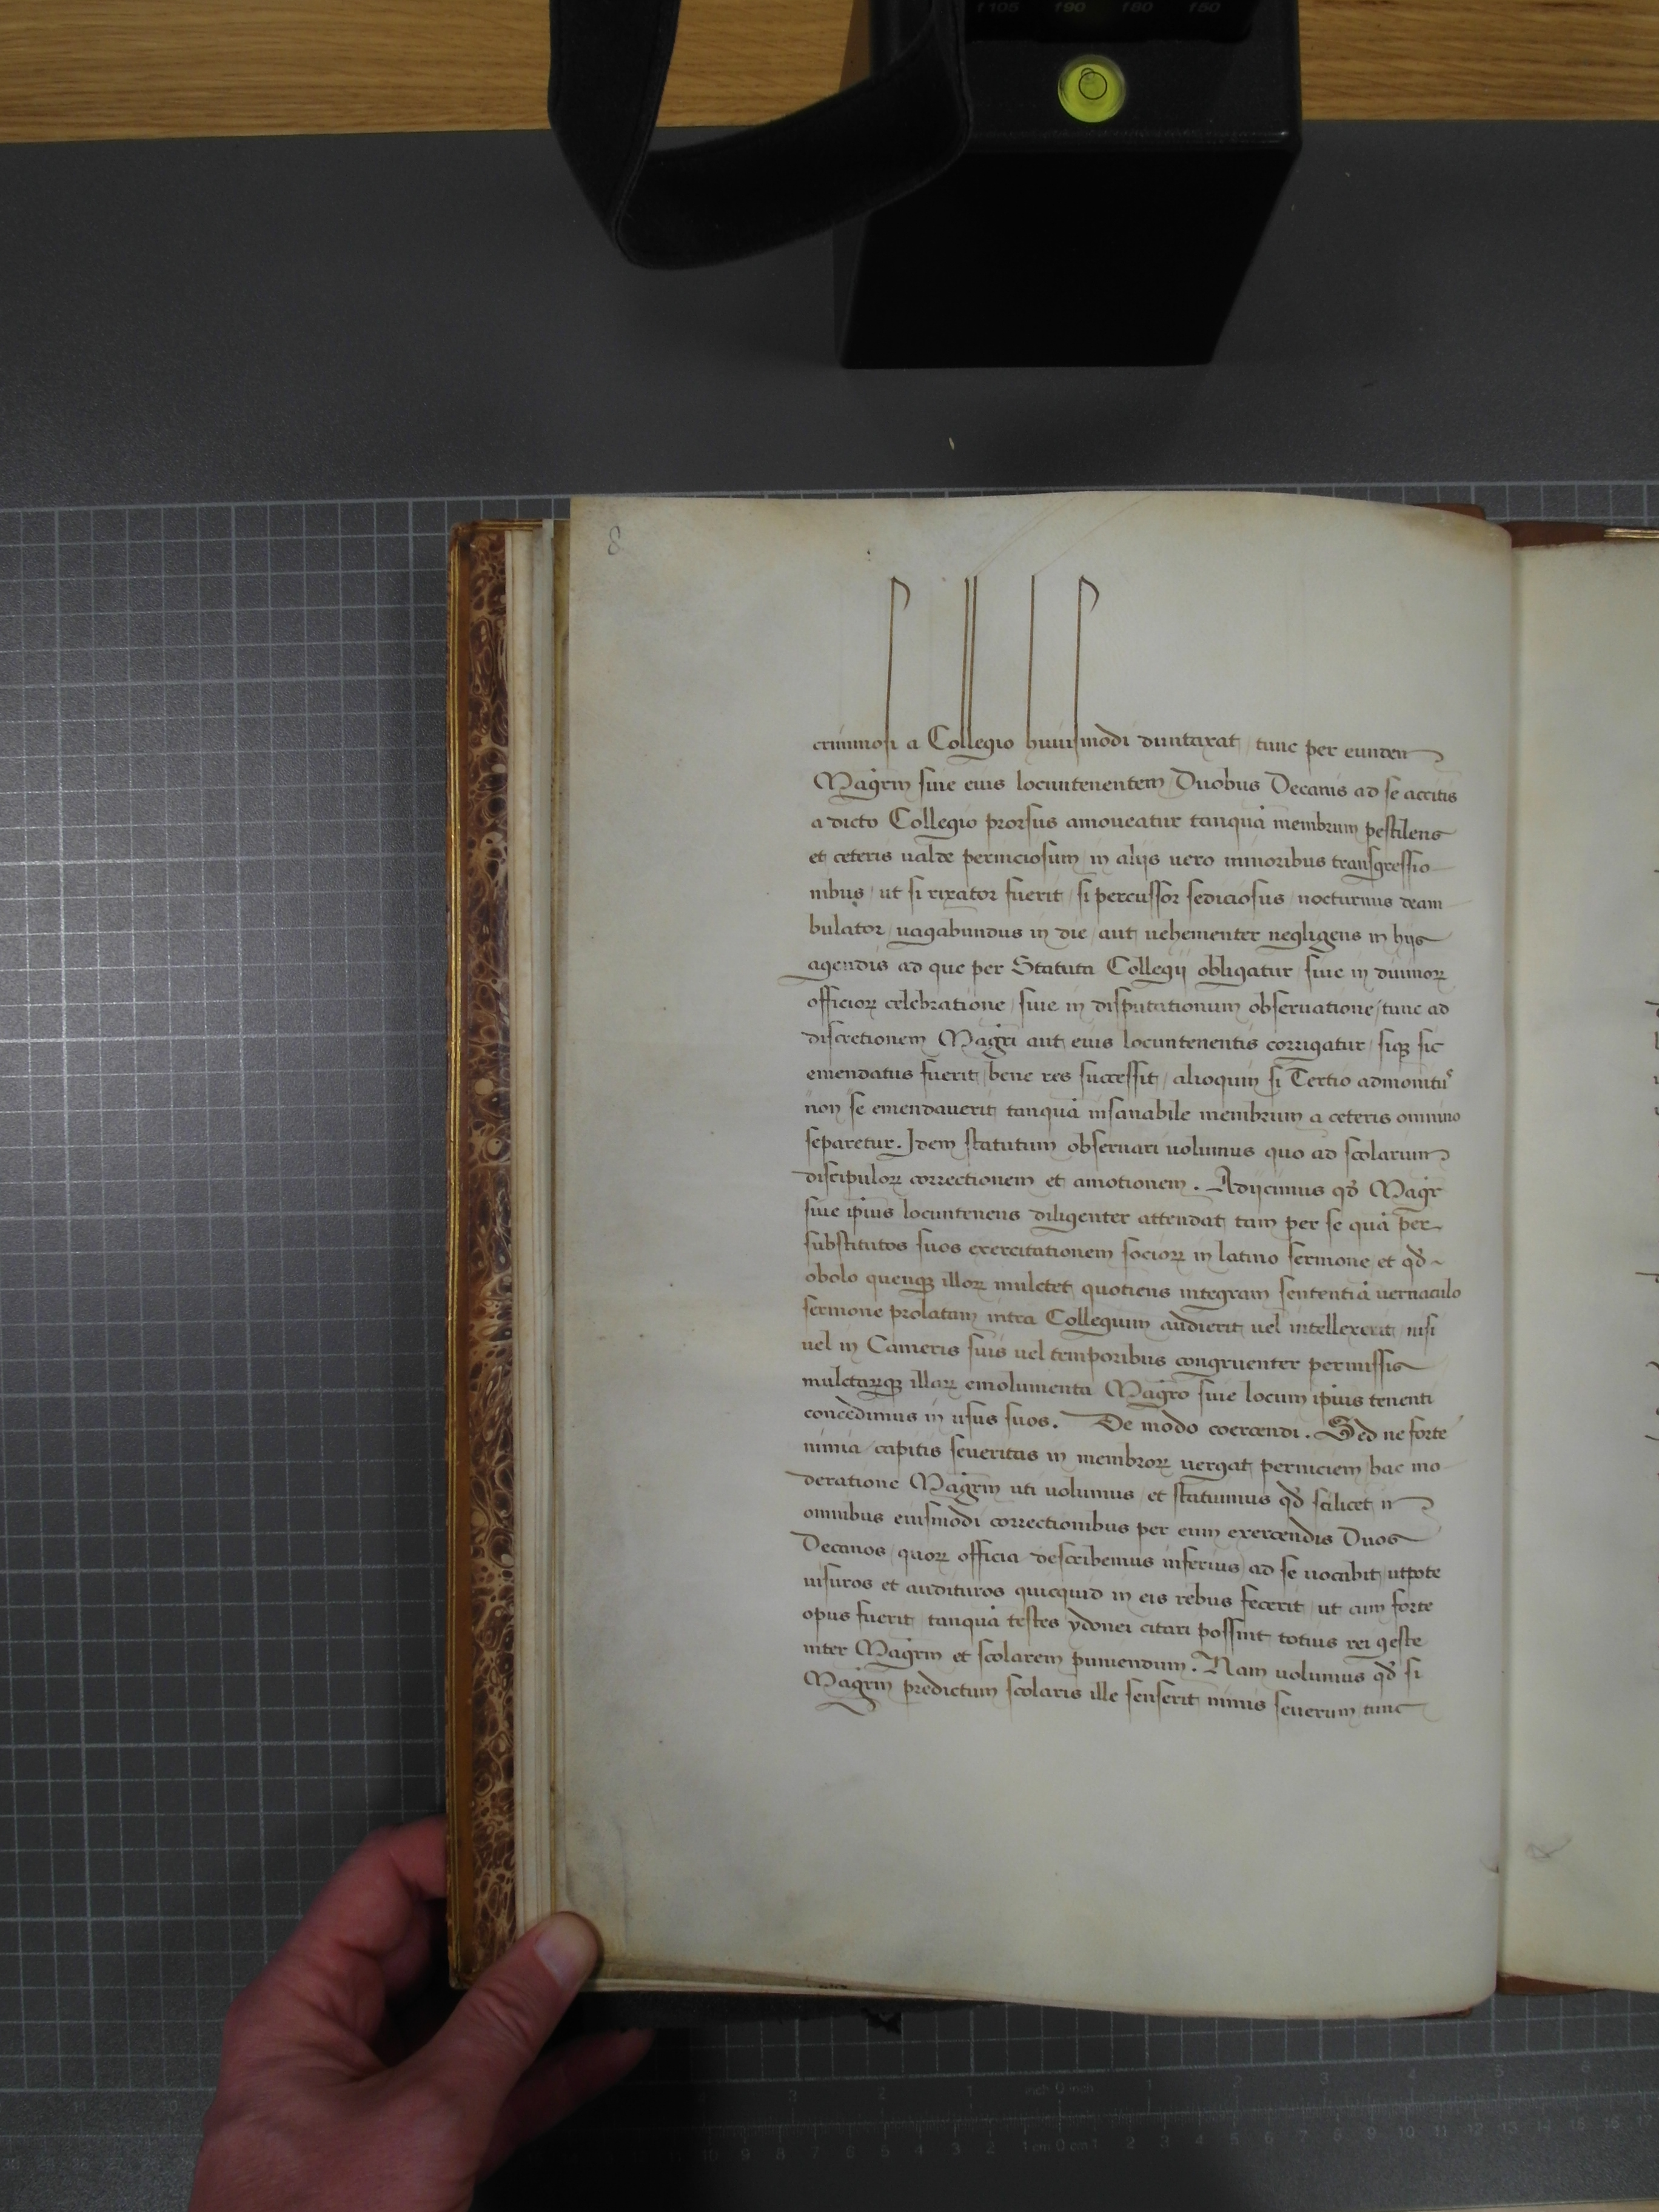 8
criminosi a Collegio huiusmodi duntaxat / tunc per eundem
Magr̄m siue eius locumtenentem / Duobus Decanis ad se accitis
a dicto Collegio prorsus amoueatur tanquā membrum pestilens
et ceteris ualde perniciosum / in alijs uero minoribus transgressio
nibus / ut si rixator fuerit / si percussor sediciosus / nocturnus deam
bulator / uagabundus in die / aut uehementer negligens in hijs
agendis ad que per Statuta Collegij obligatur / siue in diuinoꝝ
officioꝝ celebratione / siue in disputationum obseruatione / tunc ad
discretionem Magr̄i aut eius locumtenentis corrigatur / siqꝫ sic
emendatus fuerit / bene res successit / alioquin si Tertio admonitu᷒
non se emendauerit tanquā insanabile membrum a ceteris omnino
separetur. Idem statutum obseruari uolumus quo ad scolarium
discipuloꝝ correctionem et amotionem. Adijcimus qd̄ Magr̄
siue ip̄ius locumtenens diligenter attendat tam per se quā per
substitutos suos exercitationem socioꝝ in latino sermone et qd̄
obolo quenqꝫ illoꝝ mulctet quotiens integram sententiā uernaculo
sermone prolatam intra Collegium audierit uel intellexerit / nisi
uel in Cameris suis uel temporibus congruenter permissis
mulctaꝝqꝫ illaꝝ emolumenta Magr̄o siue locum ip̄ius tenenti
concedimus in usus suos. De modo coercendi. Sed ne forte
nimia capitis seueritas in membroꝝ uergat perniciem hac mo
deratione Magr̄m uti uolumus / et statuimus qd̄ scilicet in
omnibus eiusmodi correctionibus per eum exercendis Duos
Decanos / quoꝝ officia describemus inferius / ad se uocabit / utpote
uisuros et audituros quicquid in eis rebus fecerit / ut cum forte
opus fuerit tanquā testes ydonei citari possint totius rei geste
inter Magr̄m et scolarem puniendum. Nam uolumus qd̄ si
Magr̄m predictum scolaris ille senserit nimis seuerum tunc
f105 f90 f80 f50
inch 0 inch
1 cm 0 cm 1